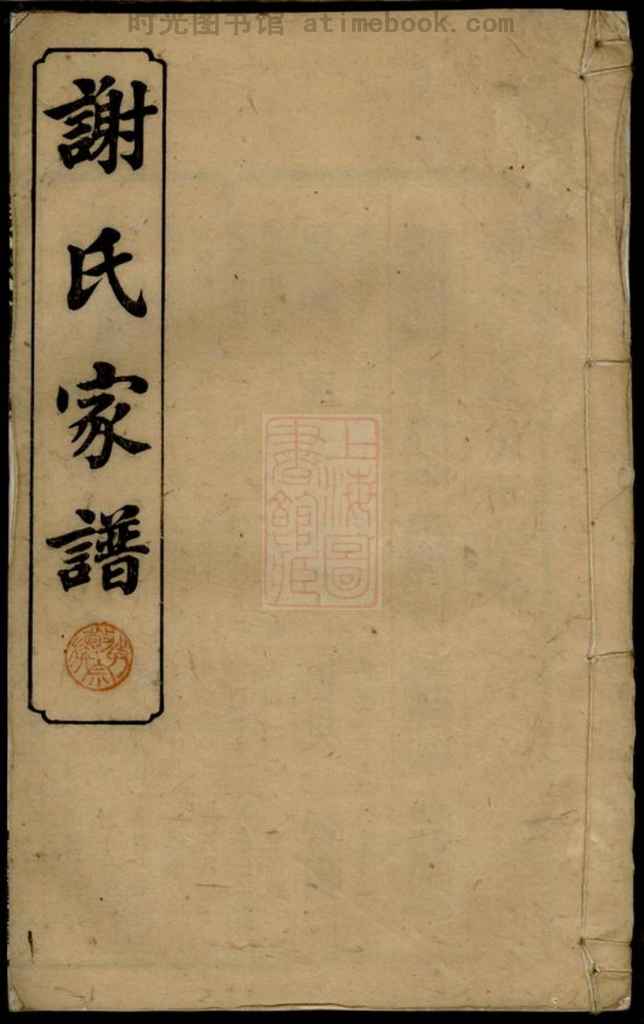 时光图书馆 atimebook.com
謝氏家譜
上海圖
書館藏